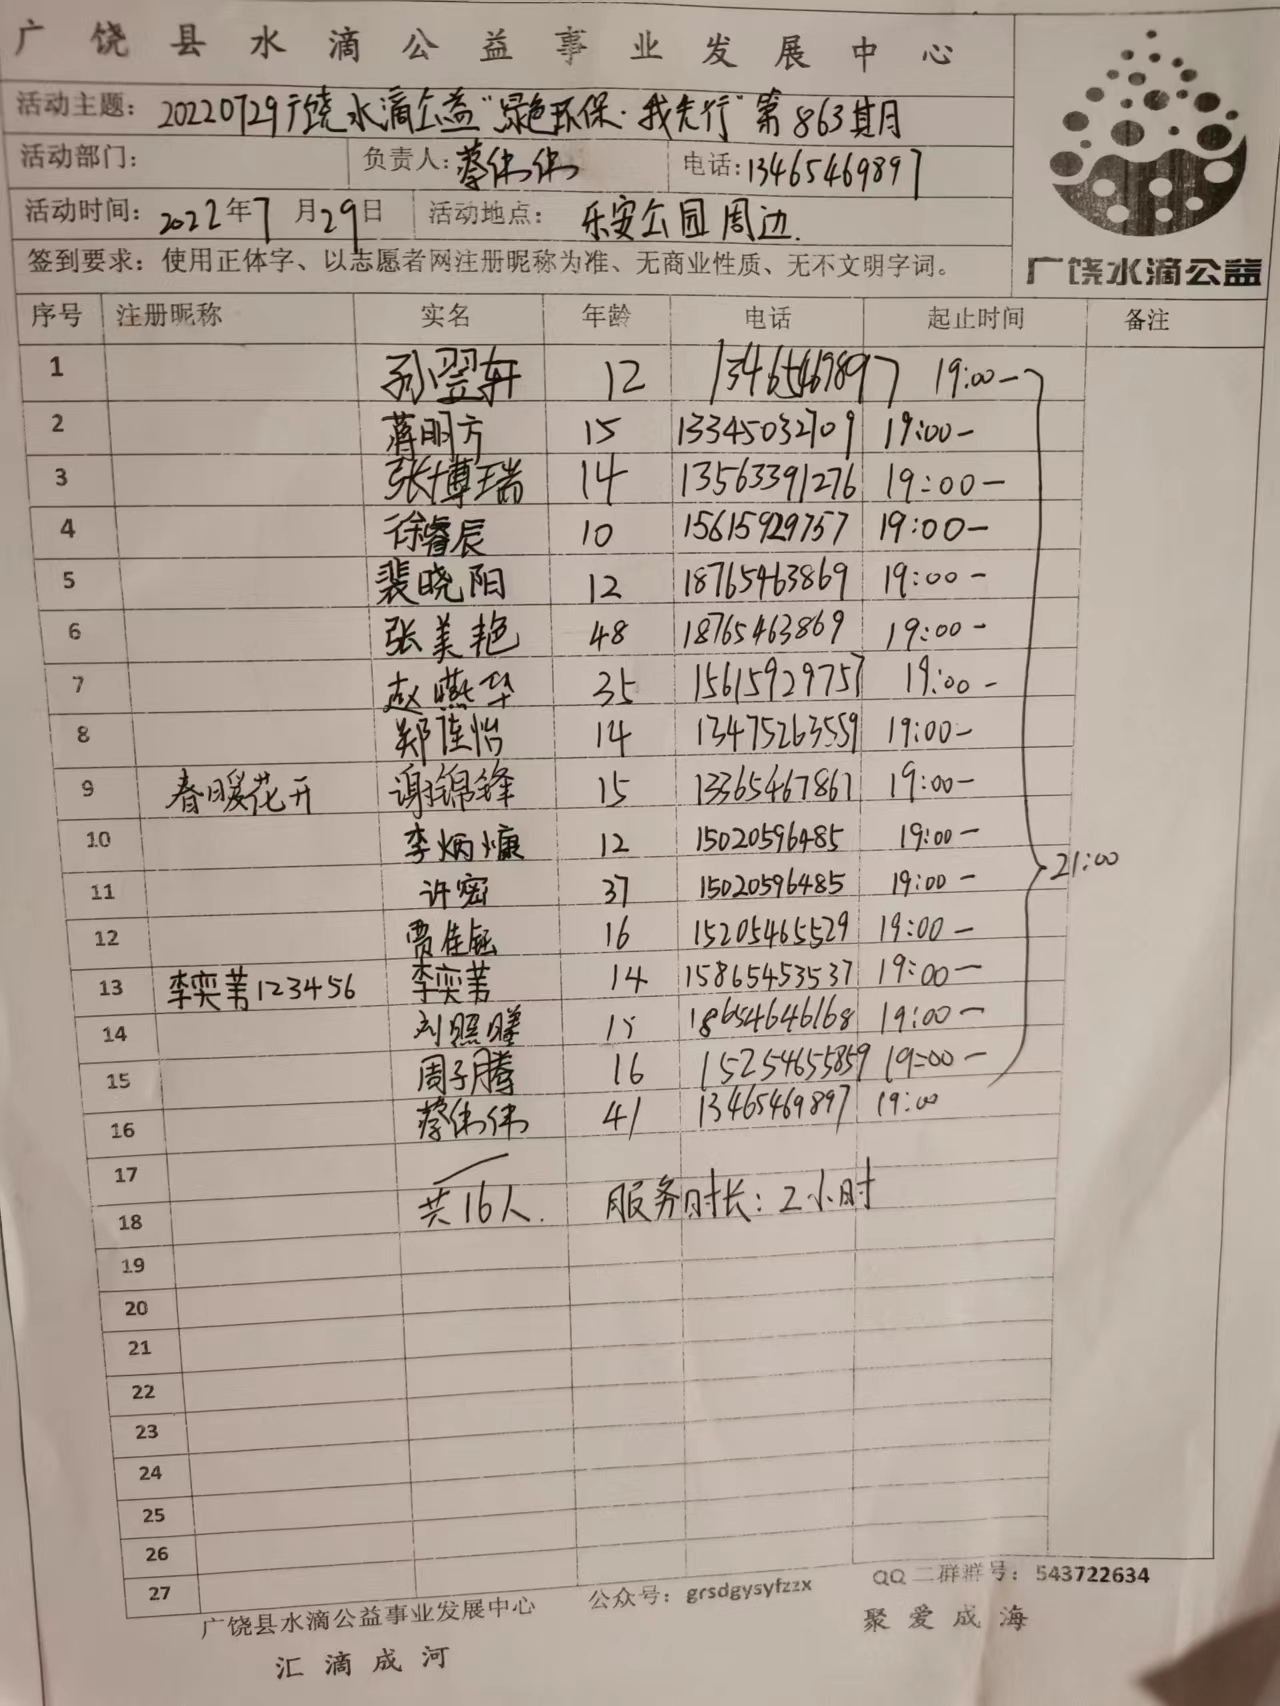 广饶县水滴公益事业发展中心
活动主题：20220729广饶水滴公益“绿色环保·我先行”第863期
活动部门： 负责人：蔡伟伟 电话：13465469897
活动时间：2022年7月29日 活动地点：乐安公园周边.
签到要求：使用正体字、以志愿者网注册昵称为准、无商业性质、无不文明字词。
广饶水滴公益
序号 注册昵称 实名 年龄 电话 起止时间 备注
1 孙翌轩 12 13465469897 19:00-
2 蒋明方 15 13345032709 19:00-
3 张博瑞 14 13563391276 19:00-
4 徐睿辰 10 15615929757 19:00-
5 裴晓阳 12 18765463869 19:00-
6 张美艳 48 18765463869 19:00-
7 赵燕华 35 15615929757 19:00-
8 郑佳怡 14 13475263559 19:00-
9 春暖花开 谢锦锋 15 13365467867 19:00-
10 李炳慷 12 15020596485 19:00-
21:00
11 许密 37 15020596485 19:00-
12 贾佳钰 16 15205465529 19:00-
13 李奕苇123456 李奕苇 14 15865453537 19:00-
14 刘照 15 18654646168 19:00-
15 周子腾 16 15254655859 19:00-
16 蔡伟伟 41 13465469897 19:00
17
18 共16人. 服务时长：2小时
19
20
21
22
23
24
25
26
27
广饶县水滴公益事业发展中心 公众号：grsdgysyfzzx QQ二群群号：543722634
汇滴成河 聚爱成海